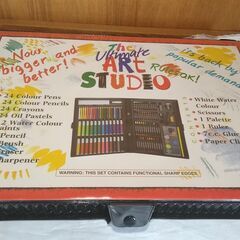 Now bigger and better!
The Ultimate
ART
STUDIO
Rucksak!
is back by popular demand
24 Colour Pens
24 Colour Pencils
24 Crayons
24 Oil Pastels
12 Water Colour
Paints
Pencil
Brush
Eraser
Sharpener
White Water
Colour
Scissors
1 Palette
1 Ruler
7c.c. Glue
Paper Clips
WARNING: THIS SET CONTAINS FUNCTIONAL SHARP EDGES.